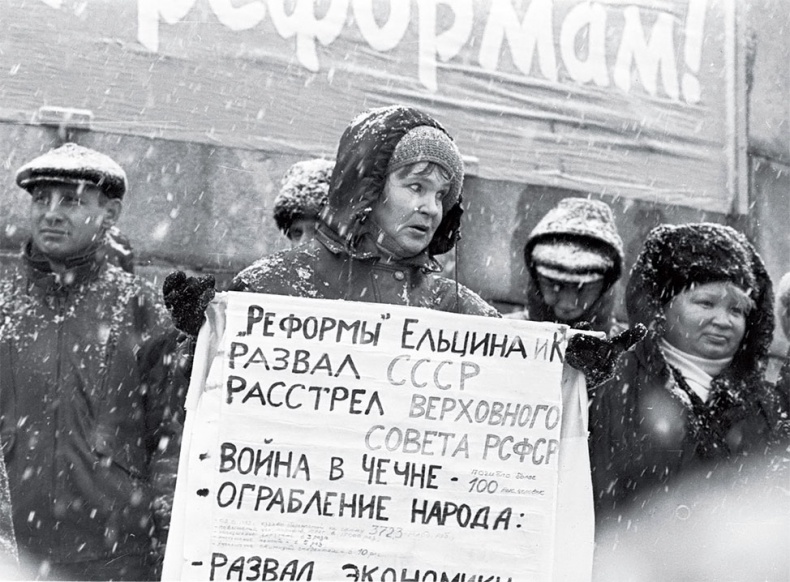 реформам!
„РЕФОРМЫ" ЕЛЬЦИНА и К
РАЗВАЛ СССР
РАССТРЕЛ ВЕРХОВНОГО
СОВЕТА РСФСР
- ВОЙНА В ЧЕЧНЕ - погибло более
100 тыс. человек
• ОГРАБЛЕНИЕ НАРОДА:
3723
10
- РАЗВАЛ ЭКОНОМИКИ